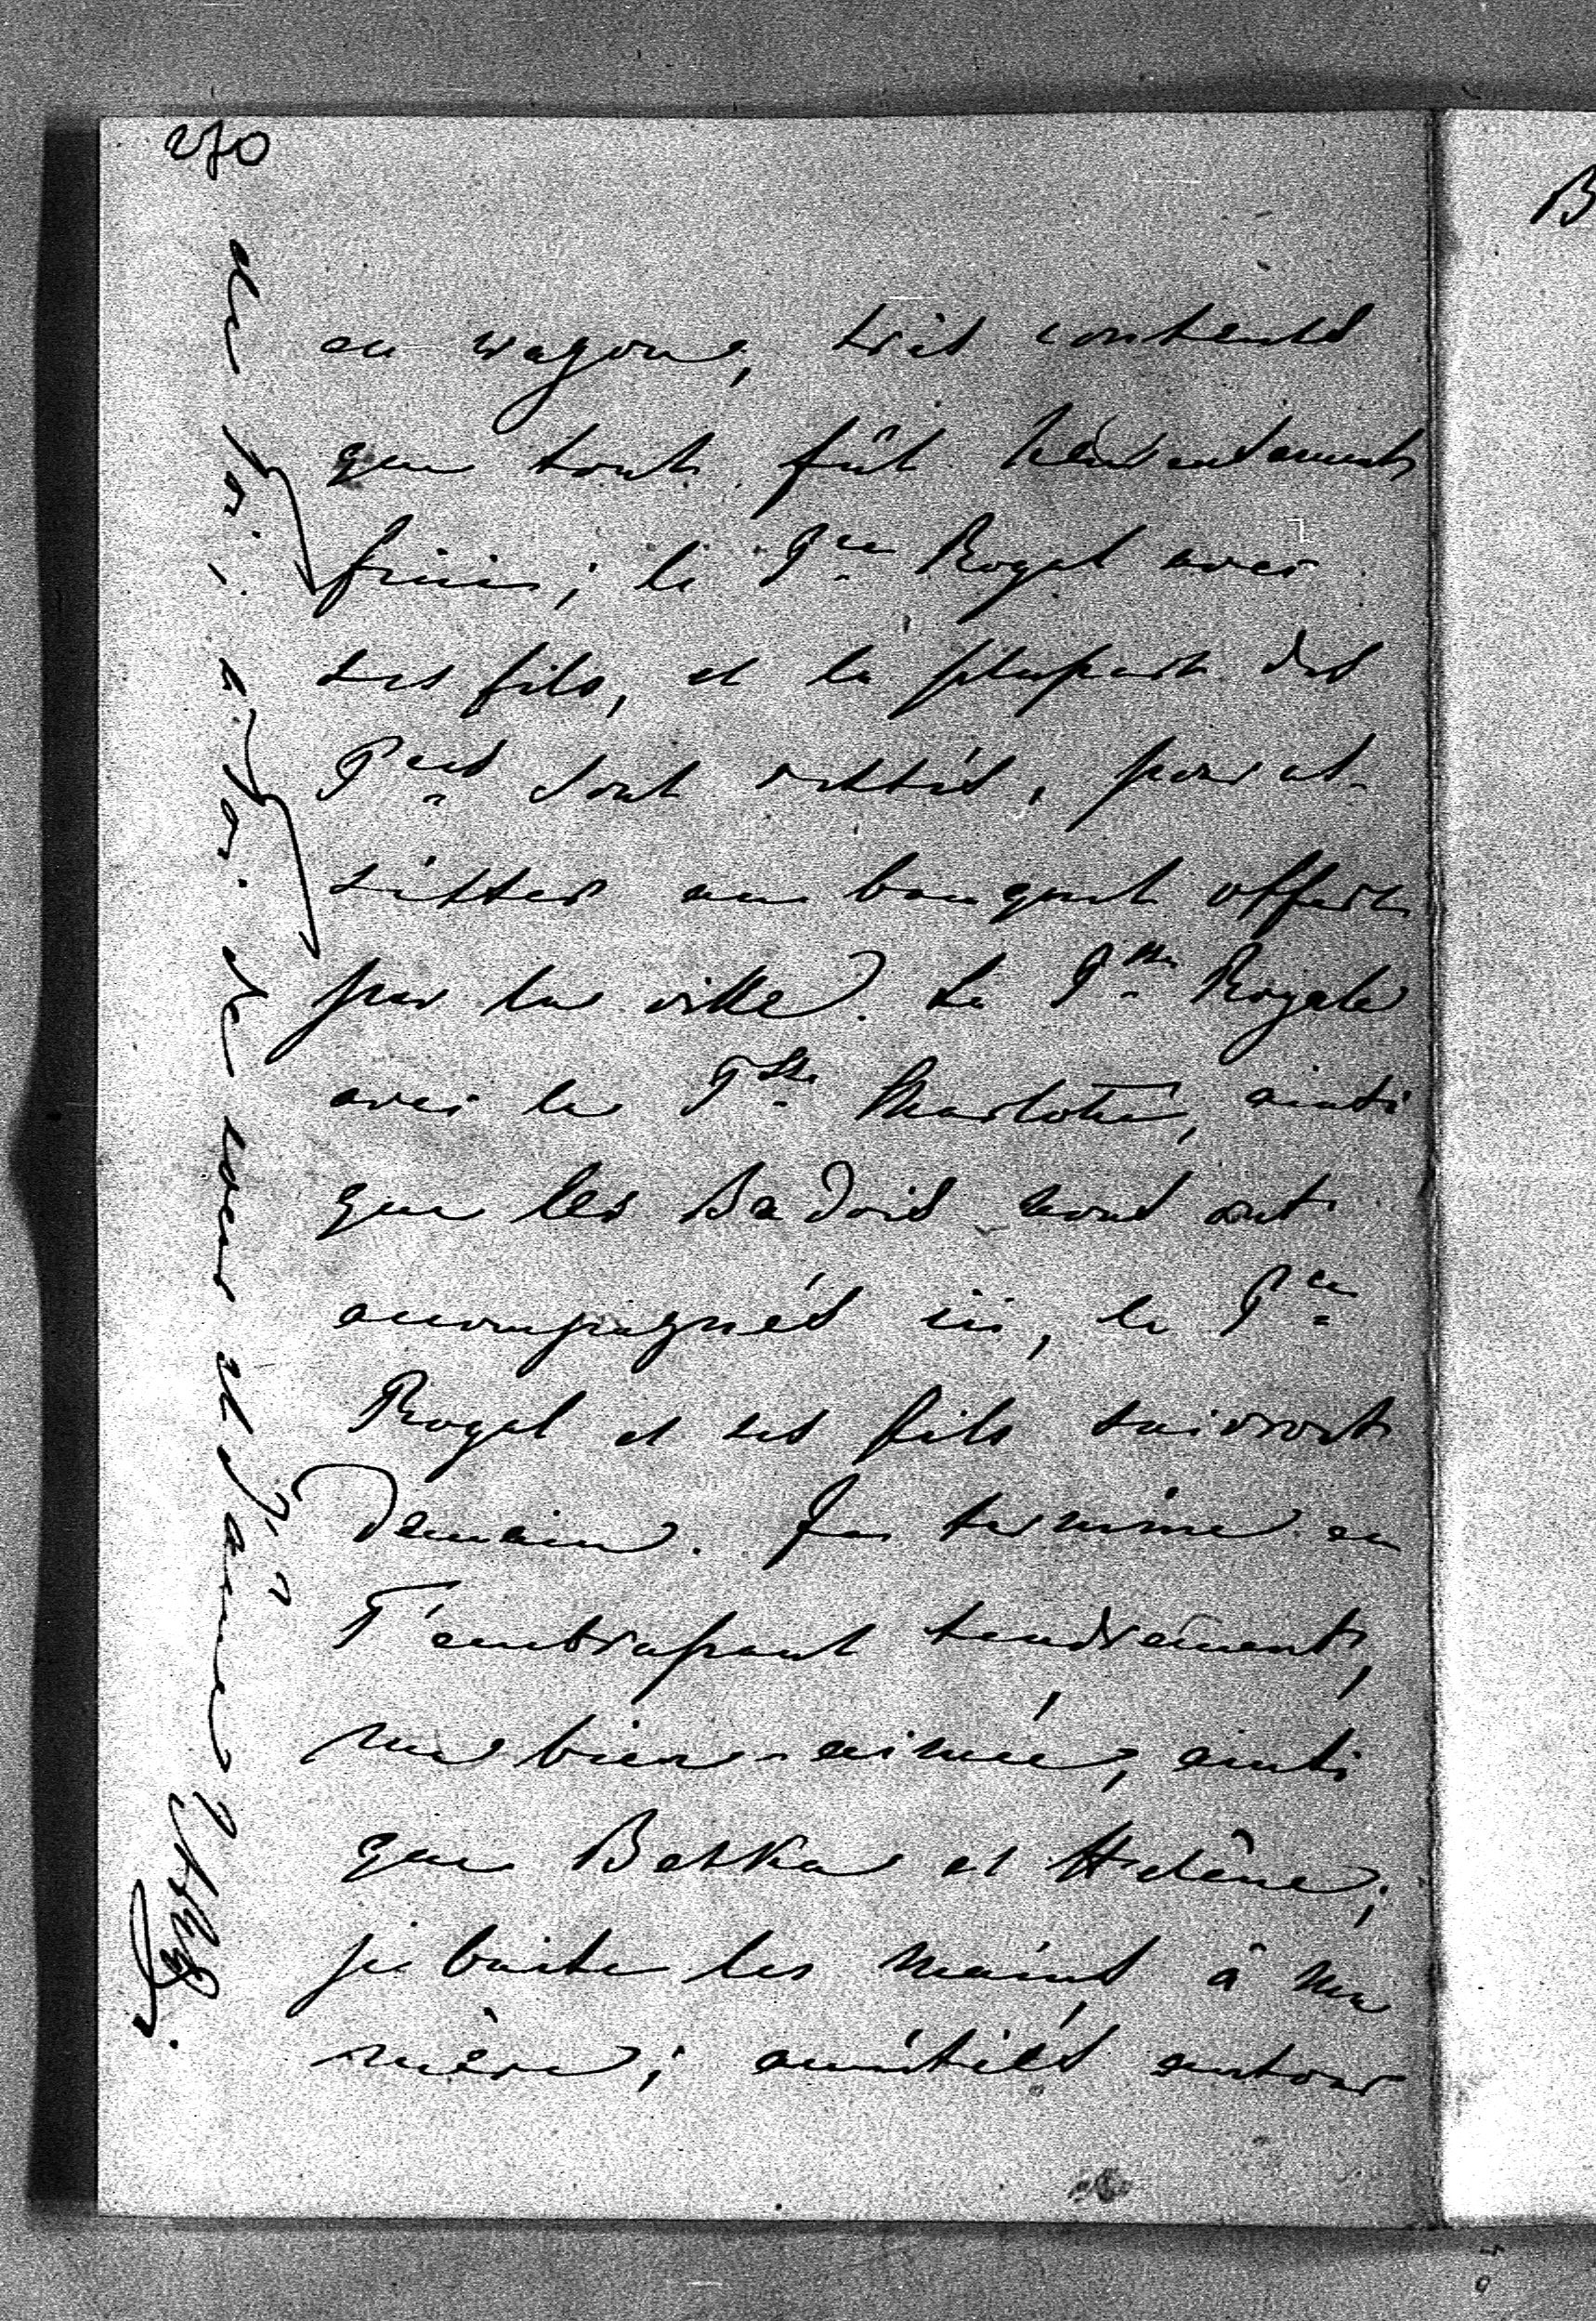 270
en wagon, très contents
que tout fût heureusement
fini; le P^ce Royal avec
ses fils, et la plupart des
P^ces sont restés, pour as-
sister au banquet offert
par la ville. La P^sse Royale
avec la P^sse Charlotte, ainsi
que les Badois nous ont
accompagnés ici, le P^ce
Royal et ses fils suivront
demain. Je termine en
T'embrassant tendrement,
ma bien-aimée, ainsi
que Betka et Hélène;
je baise les mains à ma
mère; amitiés autour
de
et
B